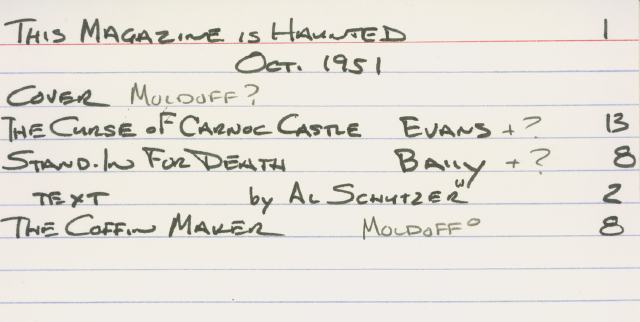 THIS MAGAZINE IS HAUNTED 1
OCT. 1951
COVER MOLDOFF?
THE CURSE OF CARNOC CASTLE EVANS + ? 13
STAND-IN FOR DEATH BAILY + ? 8
TEXT by AL SCHUTZER W 2
THE COFFIN MAKER MOLDOFF° 8